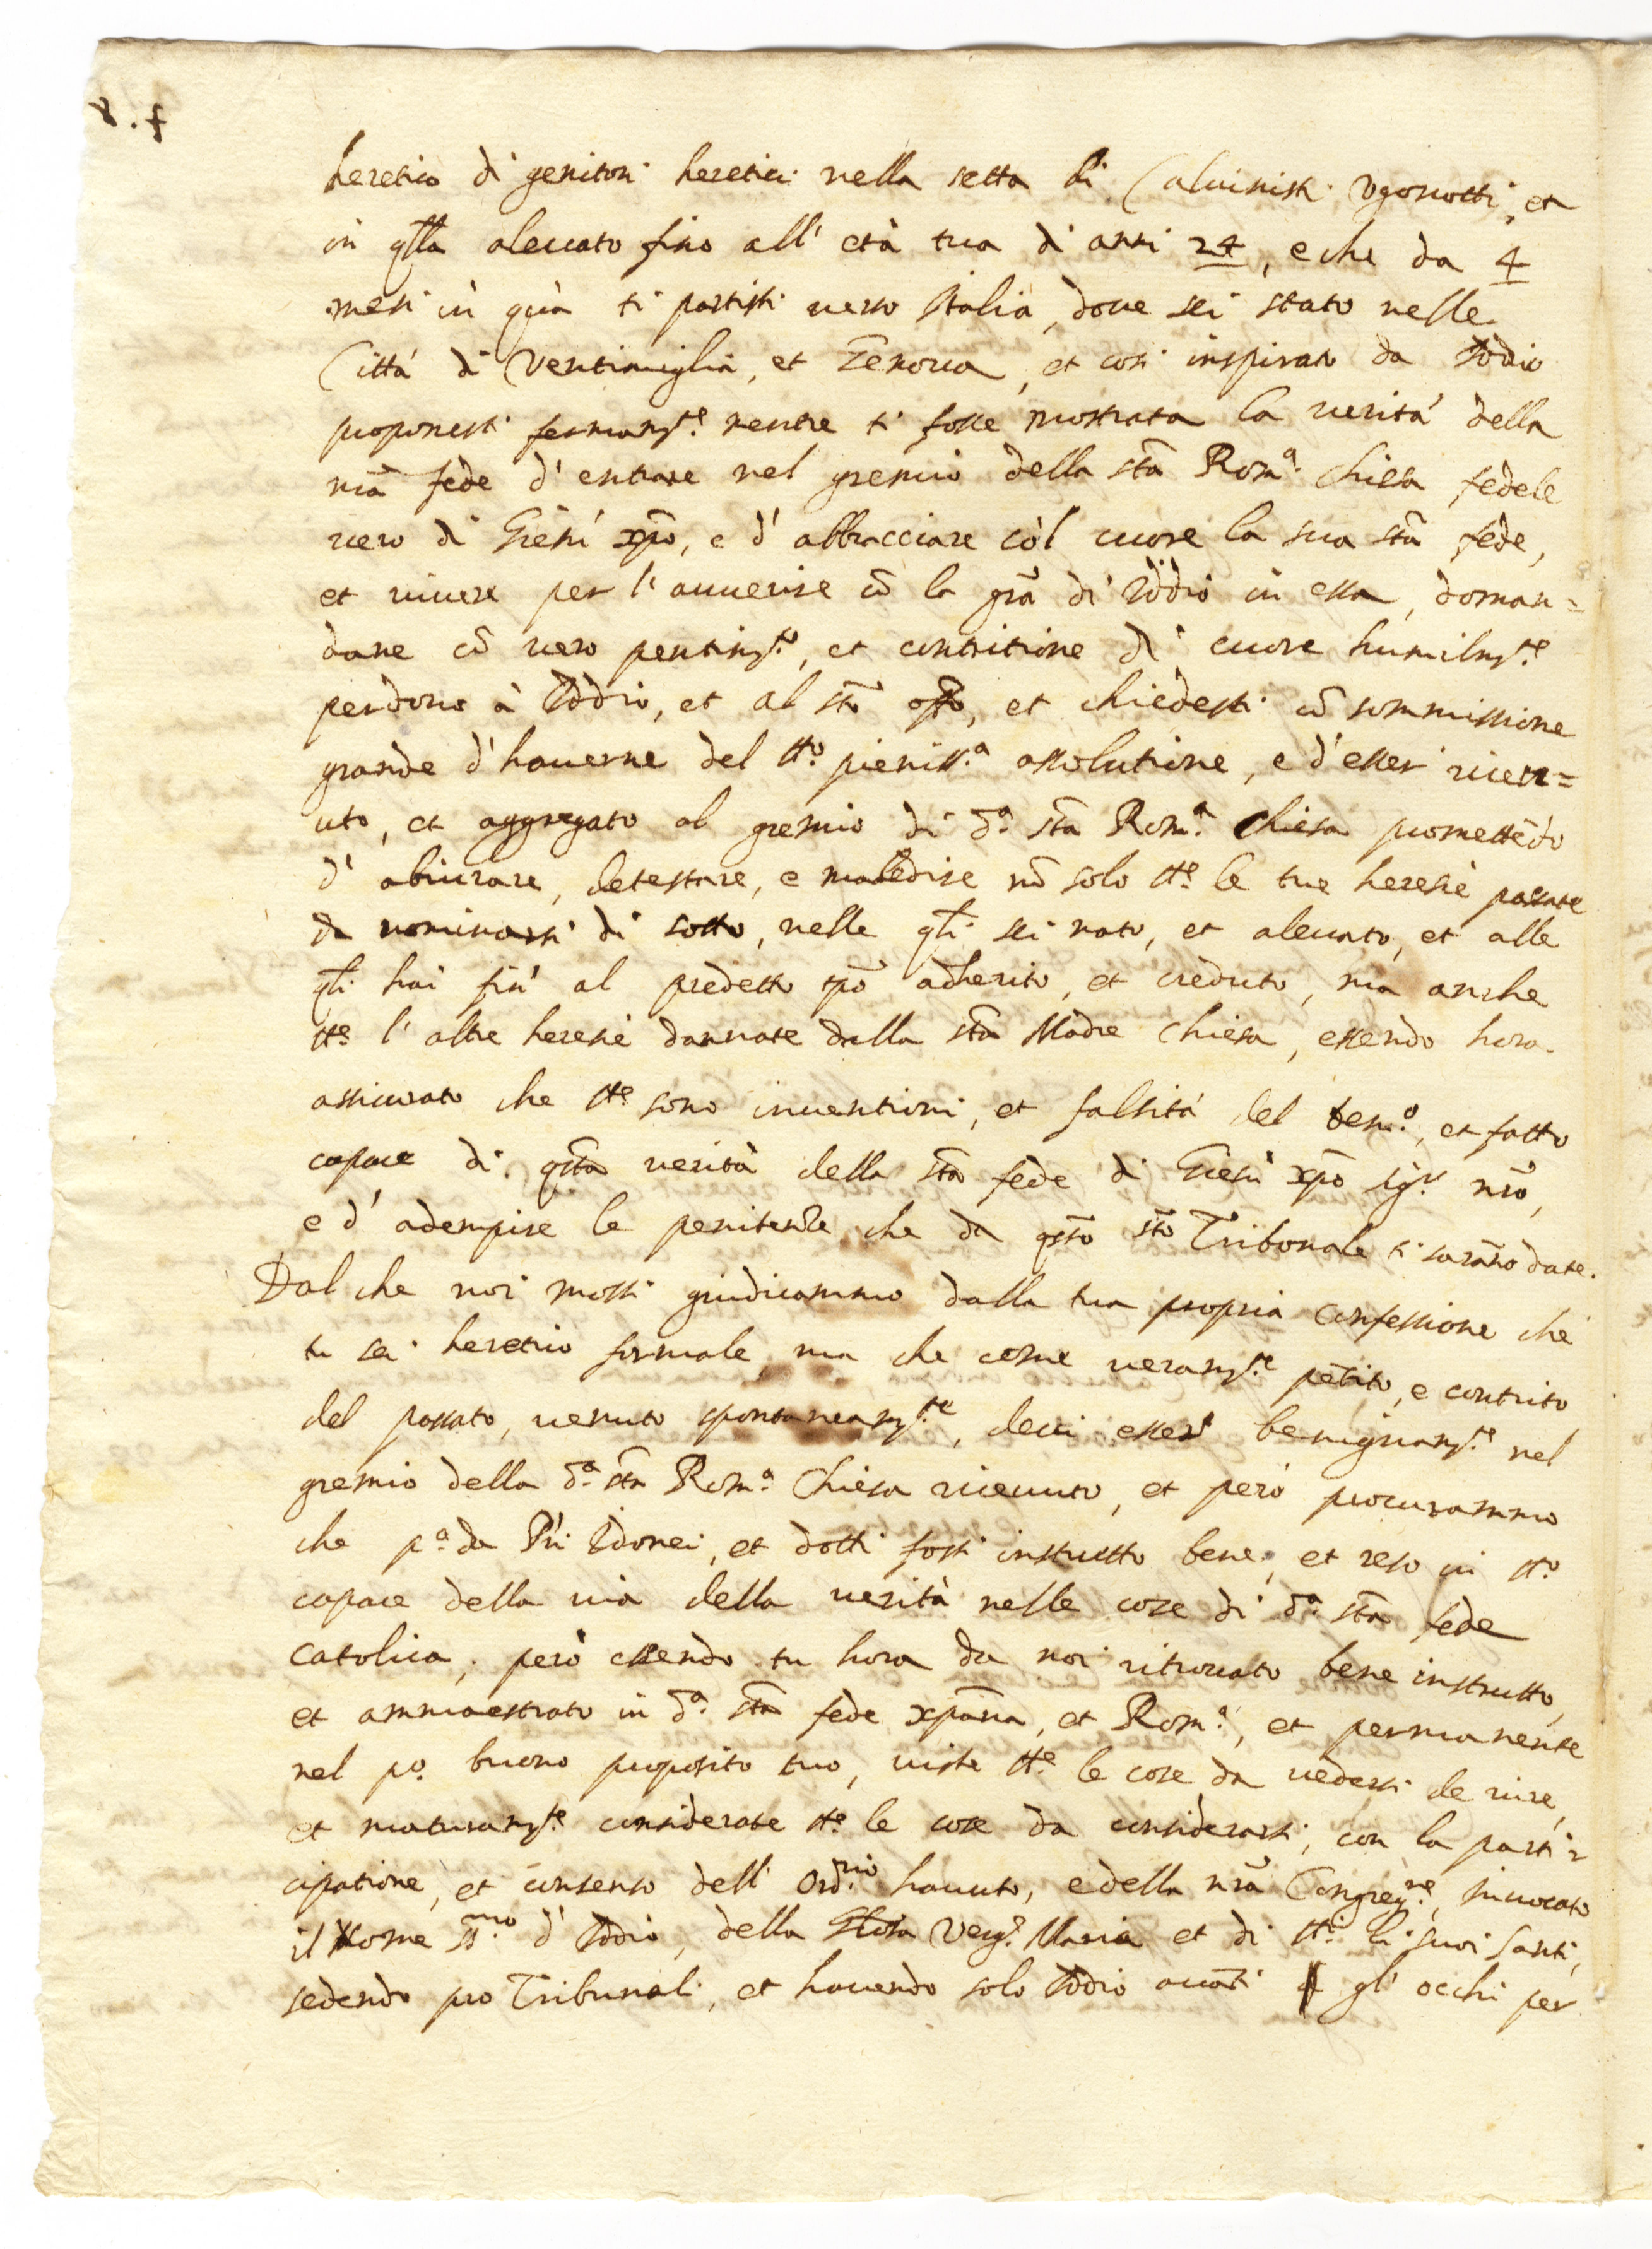 heretico di genitori heretici nella setta di Calvinisti Ugonotti, et
in qlla alevato fino all' età tua di anni 24, e che da 4
mesi in quà ti partisti verso Italia, dove sei stato nelle
Città di Ventimiglia, et Zenova, et così inspirato da Iddio
proponesti fermamte. mentre ti fosse mostrata la verità della
nrā fede d'entrare nel gremio della stā Roma. Chiesa fedele
vero di Giesù xpō, e d'abbracciare còl cuore la sua stā fede,
et vivere per l'avvenire cō la grā di Iddio in essa, doman=
dane cō vero pentimto., et contritione di cuore humilmte.
perdono à Iddio, et al stō offō, et chiedesti cō sommissione
grande d'haverne del tto. pieniss.a assolutione, e d'esser ricev=
uto, et aggregato al gremio di d.a stā Rom.a Chiesa promettēdo
d'abiurare, detestare, e maledire nō solo tte. le tue heresie passate
da nominarsi di sotto, nelle qli sei nato, et alevato, et alle
qli hai fin' al predetto tpō adherito, et creduto, ma anche
tte. l'altre heresie dannate dalla stā Madre Chiesa, essendo hora
assicurato che tte. sono inventioni, et falsità del Dem.o, et fatto
capace di qstā verità della stā fede di Giesù xpō sigr. nrō,
e d'adempire le penitenze che da qstō stō Tribonale ti sarāno date.
Dal che noi mossi giudicammo dalla tua propria confessione che
tu sei heretico formale, ma che come veramte. pētito, e contrito
del passato, venuto spontaneamte., devi esser benignamte. nel
gremio della d.a stā Rom.a Chiesa ricevuto, et però procurammo
che p.a da Pri Idonei, et dotti fosti instrutto bene, et reso in tto.
capace della via della verità nelle cose di d.a stā fede
Catolica, però essendo tu hora da noi ritrovato bene instrutto,
et ammaestrato in d.a stā fede xpāna, et Rom.a, et permanente
nel po. buono proposito tuo, viste tte. le cose da vedersi de iure,
et maturamte. considerate tte. le cose da considerarsi, con la parti=
cipatione, et consenso dell' Ord.rio havuto, e della nrā Congreg.ne, invocato
il Nome SS.mo d'Iddio, della Glosa Verg.e Maria et di tti. li suoi santi,
sedendo pro Tribunali, et havendo solo Iddio avāti gl'occhi per